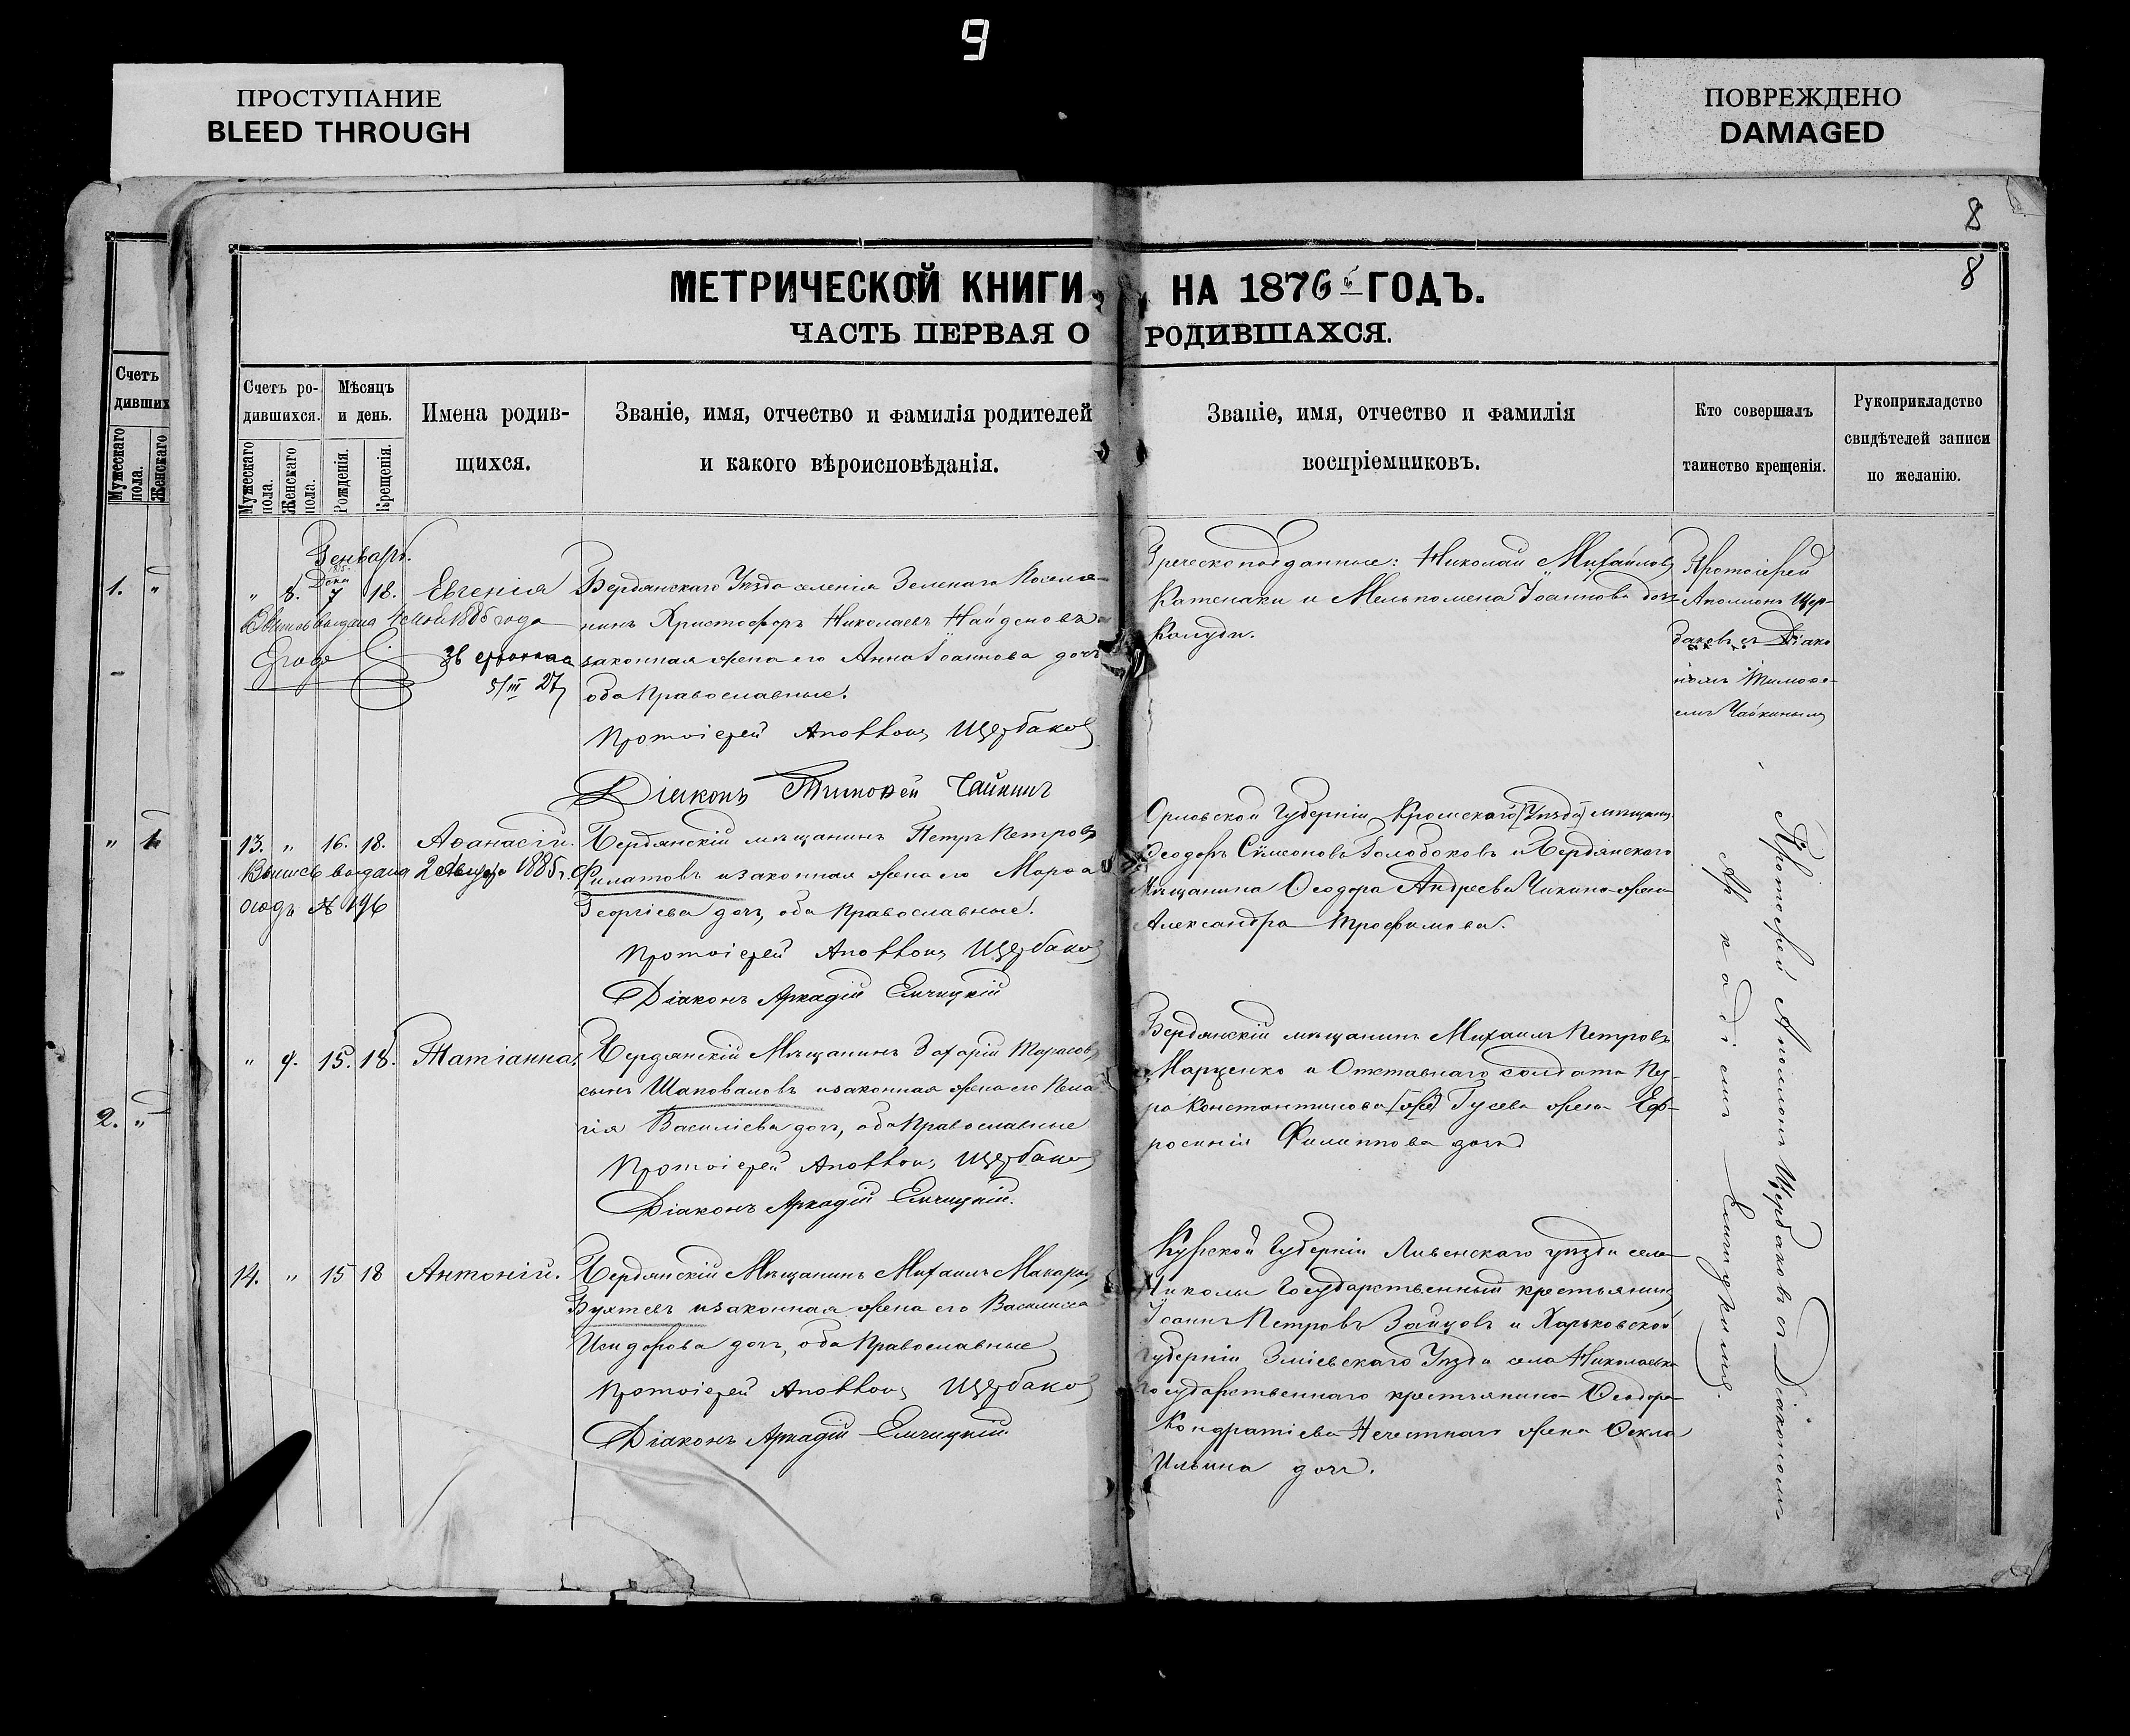 9
ПРОСТУПАНИЕ
BLEED THROUGH
ПОВРЕЖДЕНО
DAMAGED
8
8
МЕТРИЧЕСКОЙ КНИГИ НА 1876 ГОДЪ.
ЧАСТЬ ПЕРВАЯ О РОДИВШАХСЯ.
Счетъ
дивших
Мужескаго
пола.
Женскаго
1. "
" 1.
2. "
Счетъ ро-
дившихся.
Мужескаго
пола.
Женскаго
пола.
Мѣсяцъ
и день.
Рожденія.
Крещенія.
Имена родив-
шихся.
Званіе, имя, отчество и фамилія родителей
и какого вѣроисповѣданія.
Званіе, имя, отчество и фамилія
воспріемниковъ.
Кто совершалъ
таинство крещенія.
Рукоприкладство
свидѣтелей записи
по желанію.
Генварь.
" 8. 7 18. Евгенія
5/III 27
Бердянскаго Уѣзда селенія Зеленаго Поселя-
нинъ Христофоръ Николаевъ Найденовъ и
законная жена его Анна Іоаннова дочь
оба Православные.
Протоіерей Аполлонъ Щербаковъ
Діаконъ Тимофей Чайкинъ
Греческоподданные: Николай Михайловъ
Катенаки и Мельпомена Іоаннова дочь
Протоіерей
Аполлонъ Щер-
баковъ съ Діако
номъ Тимофе-
емъ Чайкинымъ
13. " 16. 18. Аѳанасій.
Выпись выдана 2 Августа 1885 г.
подъ № 196
Бердянскій мѣщанинъ Петръ Петровъ
Филатовъ и законная жена его Марѳа
Георгіева дочь, оба Православные.
Протоіерей Аполлонъ Щербаковъ
Діаконъ Аркадій Емчицкій
Орловской Губерніи Кромскаго Уѣзда мѣщанинъ
Ѳеодоръ Сумеоновъ Голобоковъ и Бердянскаго
Мѣщанина Ѳеодора Андреева Чикина жена
Александра Трофимова.
" 9. 15. 18. Татіанна.
Бердянскій Мѣщанинъ Захарій Тарасовъ
сынъ Шаповаловъ и законная жена его Пела
гія Василіева дочь, оба Православные
Протоіерей Аполлонъ Щербаковъ
Діаконъ Аркадій Емчицкій.
Бердянскій мѣщанинъ Михаилъ Петровъ
Марченко и Отставнаго солдата
Константинова Гусева жена Еф-
росинія Филиппова дочь
14. " 15 18 Антоній.
Бердянскій Мѣщанинъ Михаилъ Макаровъ
Бухтеевъ и законная жена его Василисса
Исидорова дочь, оба Православные
Протоіерей Аполлонъ Щербаковъ
Діаконъ Аркадій Емчицкій
Курской Губерніи Ливенскаго уѣзда села
Николы Государственный крестьянинъ
Іоаннъ Петровъ Зайцовъ и Харьковской
Губерніи Зміевскаго Уѣзда села Николаевки
государственнаго крестьянина Ѳеодора
Кондратіева Нечетнаго жена Ѳекла
Ильина дочь.
Протоіерей Аполлонъ Щербаковъ съ Діакономъ
Аркадіемъ Емчицкимъ.